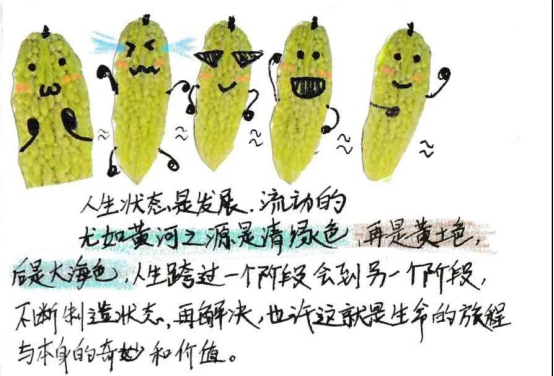 人生状态是发展.流动的
尤如黄河之源是清绿色,再是黄土色,
后是大海色,人生跨过一个阶段会到另一个阶段,
不断制造状态,再解决,也许这就是生命的旅程
与本身的奇妙和价值。